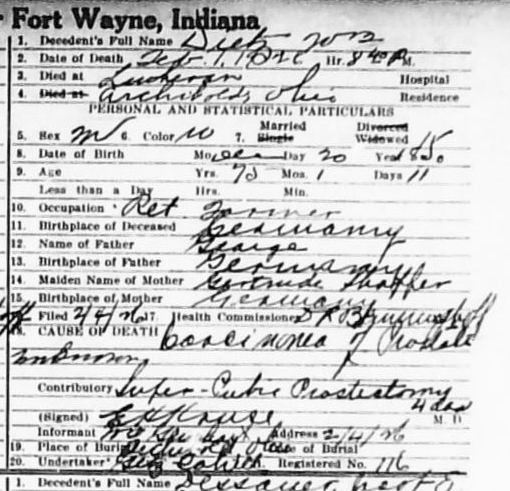 Fort Wayne, Indiana
1. Decedent's Full Name Dietz Wm
2. Date of Death Feb. 1, 1926 Hr. 8 40 P M.
3. Died at Lutheran Hospital
4. Died at Archibold, Ohio Residence
PERSONAL AND STATISTICAL PARTICULARS
5. Sex M 6. Color W 7. Married Single Divorced Widowed
8. Date of Birth Mo. Dec Day 20 Year 1850
9. Age Yrs. 75 Mos. 1 Days 11
Less than a Day Hrs. Min.
10. Occupation Ret Farmer
11. Birthplace of Deceased Germany
12. Name of Father George
13. Birthplace of Father Germany
14. Maiden Name of Mother Gertrude Shaffer
15. Birthplace of Mother Germany
Filed 2/4/26 17. Health Commissioner
18. CAUSE OF DEATH Carcinomea of Prostate
unknown
Contributory Super-Pubic Prostectomy
4 das
(Signed) E H Kruse M. D.
Informant Address 2/4/26
19. Place of Burial Date of Burial
20. Undertaker Registered No. 116
1. Decedent's Full Name Dessauer,